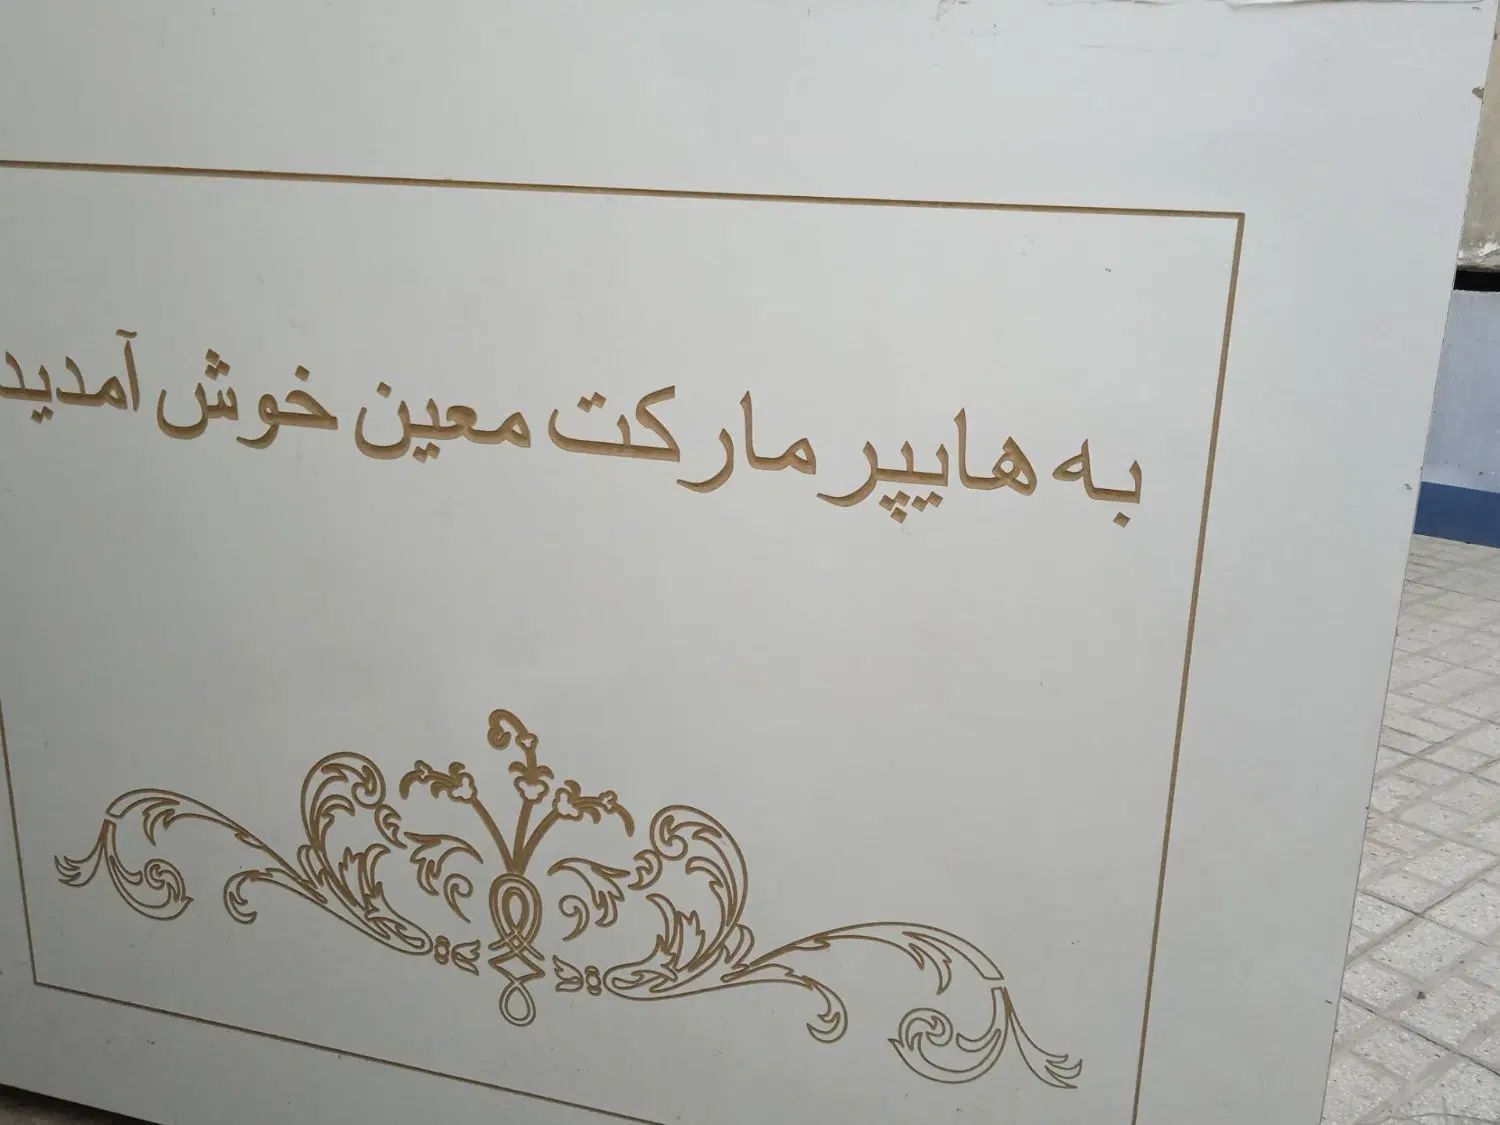 به هایپر مارکت معین خوش آمدید